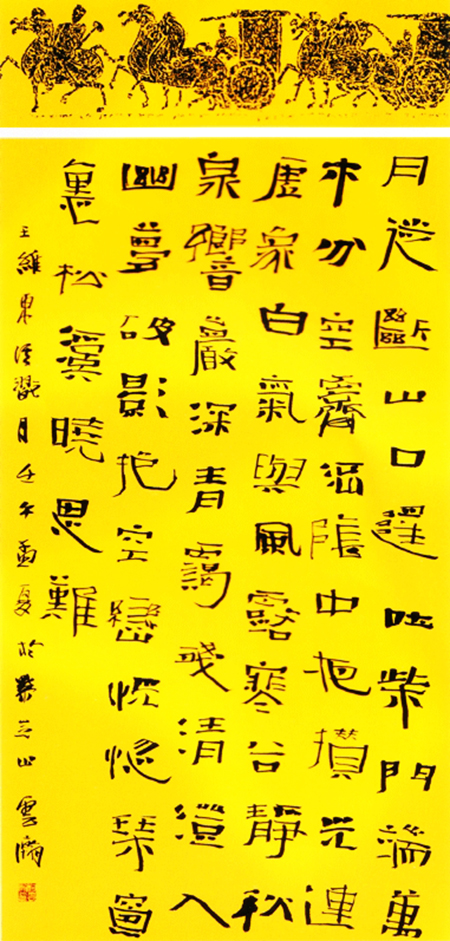 月從斷山口遙吐柴門端萬
木分空霽流陰中夜攢光連
虛象白氣與風露寒谷靜秋
泉響巖深青靄殘清澄入
幽夢破影抱空巒恍惚琴窗
裏松溪曉思難
王維東溪翫月壬午孟夏於山雲